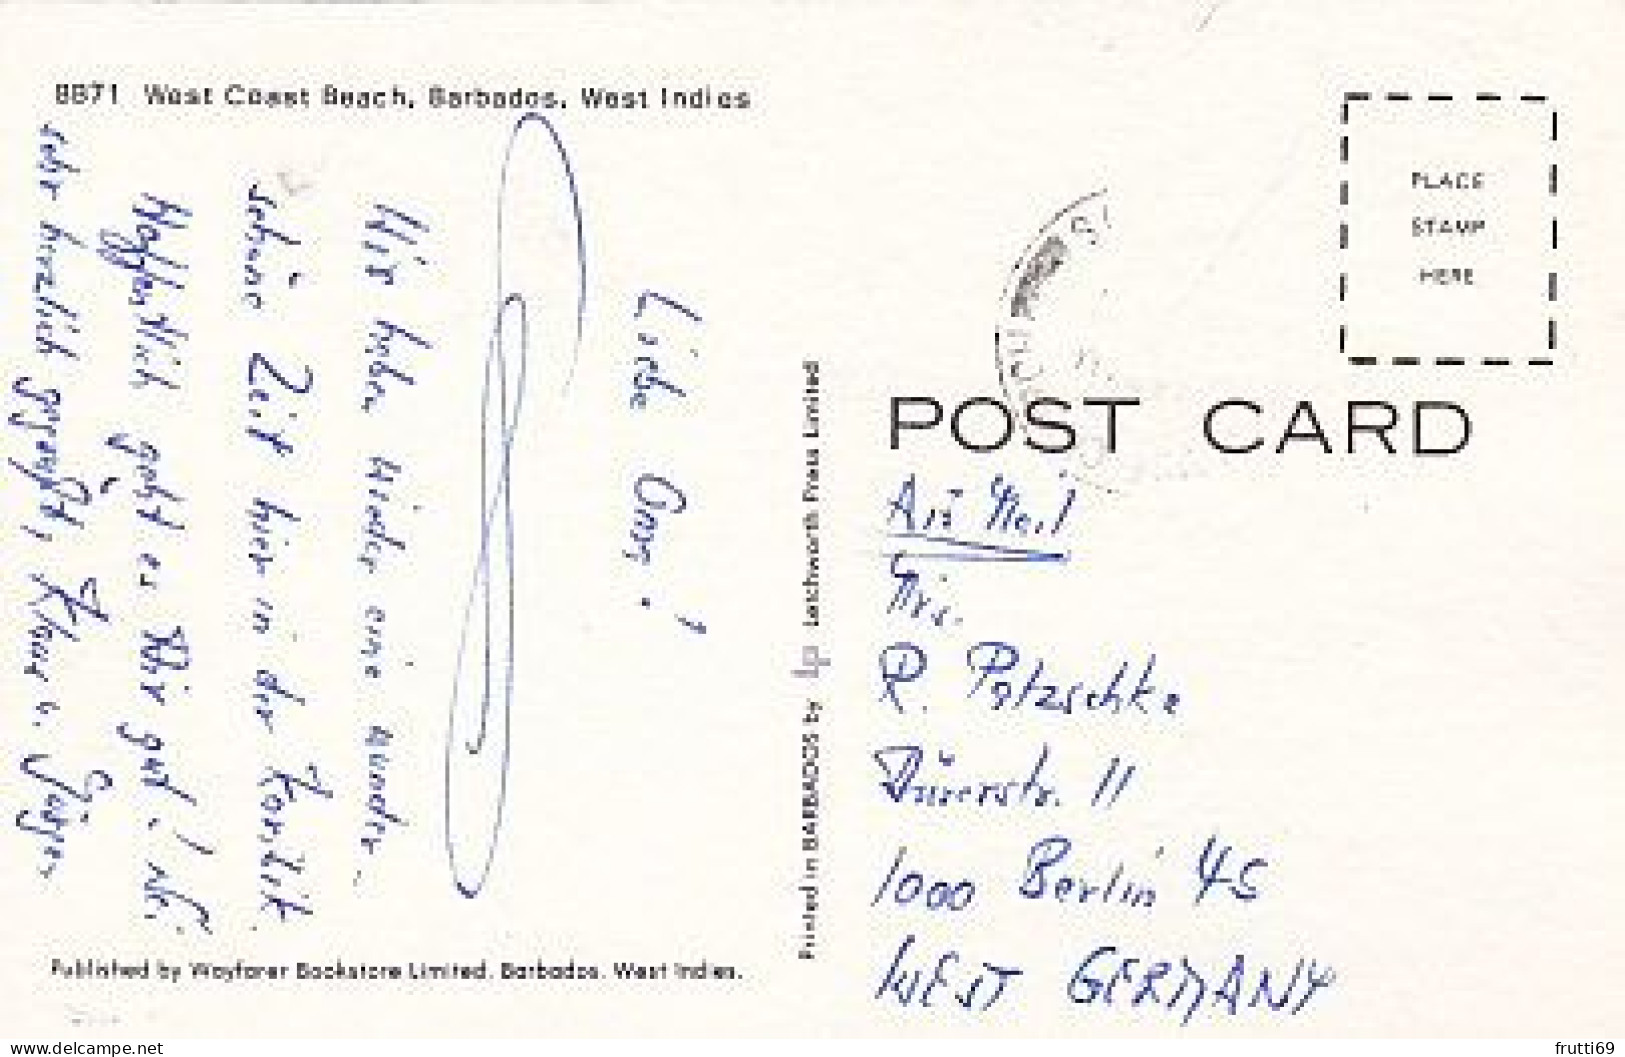 8871 West Coast Beach, Barbados, West Indies
Liebe Omi!
Wir haben wieder eine wunder-
schöne Zeit hier in der Karibik.
Hoffentlich geht es Dir gut!
sehr herzlich gegrüßt, Klaus u. Jürgen
Published by Wayfarer Bookstore Limited, Barbados, West Indies.
Printed in BARBADOS by Lp Letchworth Press Limited
PLACE
STAMP
HERE
POST CARD
Air Mail
Mrs.
R. Patzschke
Dürerstr. 11
1000 Berlin 45
WEST GERMANY
delcampe.net
frutti69